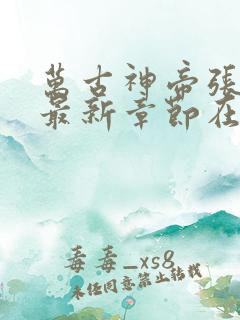 萬古神帝張
最新章節在
毒毒_xs8
未经同意禁止转载